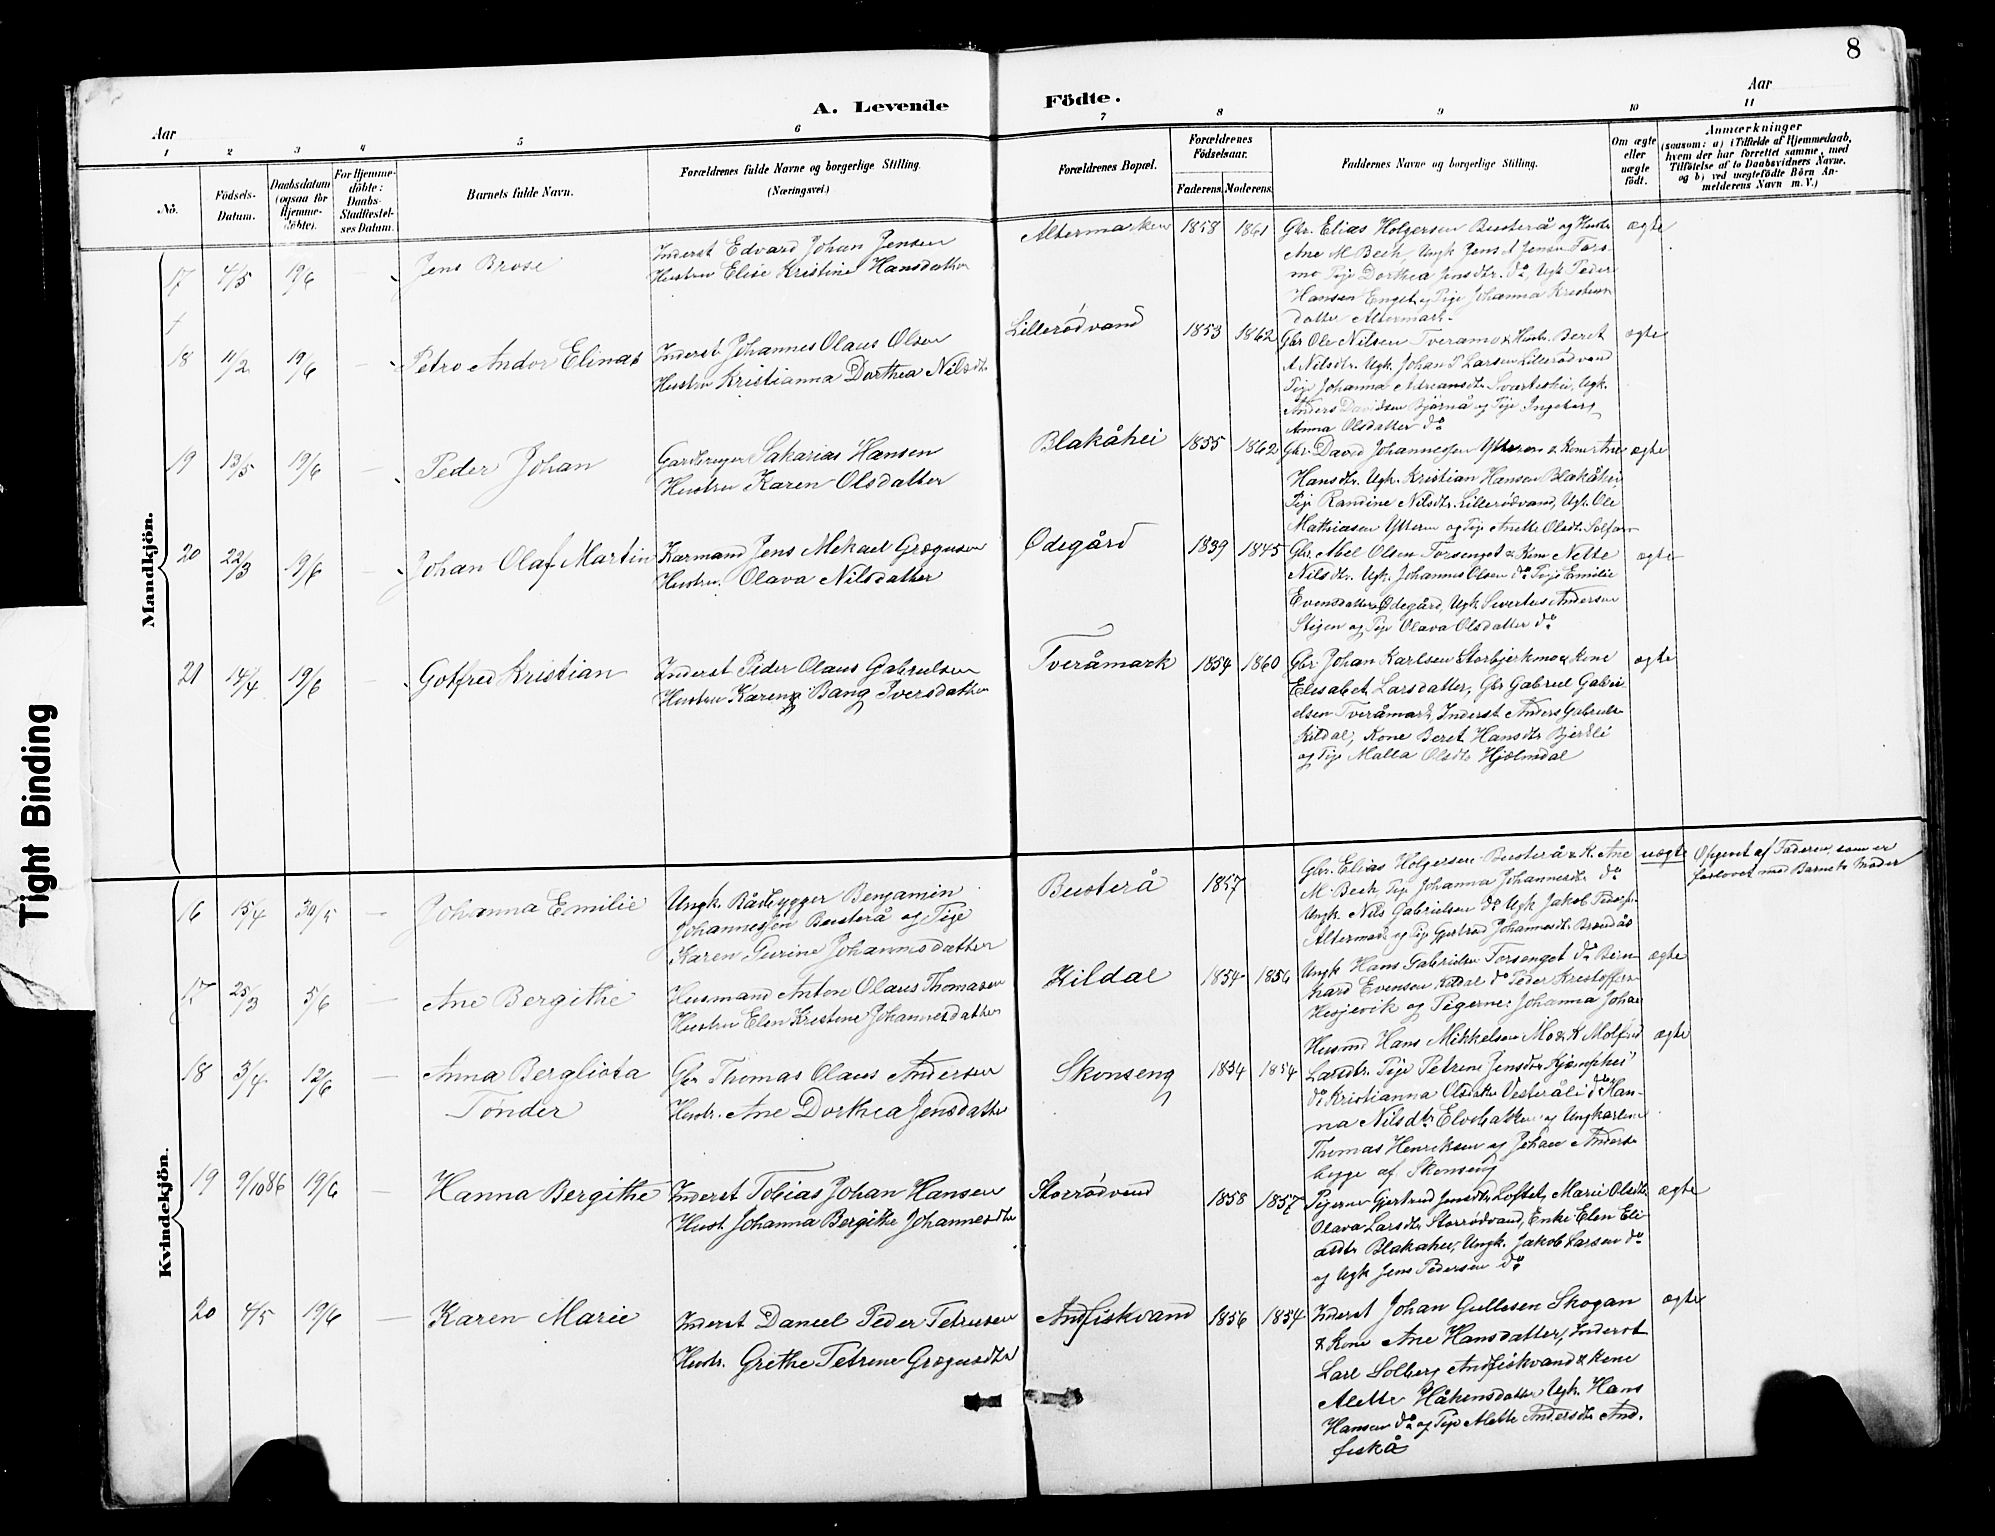 8
A. Levende Födte.
Aar
Aar
1 2 3 4 5 6 7 8 9 10 11
Nö.
Födsels-Datum.
Daabsdatum (ogsaa for Hjemmedöbte).
For Hjemmedöbte: Daabs-Stadfæstelses Datum.
Barnets fulde Navn.
Forældrenes fulde Navne og borgerlige Stilling. (Næringsvei.)
Forældrenes Bopæl.
Forældrenes Födselsaar.
Faderens. Moderens.
Faddernes Navne og borgerlige Stilling.
Om ægte eller uægte födt.
Anmærkninger (saasom: a) i Tilfælde af Hjemmedaab, hvem der har forrettet samme, med Tilföielse af to Daabsvidners Navne, og b) ved uægtefödte Börn Anmelderens Navn m. V.)
Mandkjön.
17 4/5 19/6 — Jens Brose
Inderst Edvard Johan Jensen
Hustru Elise Kristine Hansdatter
Altermarken 1858 1861
Gbr. Elias Holgersen Busterå og Hustr
Ane M Bech, Ungk Jens A Jensen Fors-
mo Pige Dorthea Jensdtr. do, Ugk Peder
Hansen Enget og Pige Johanna Kristian
datter Altermark.
ægte
18 11/2 19/6 — Petro Andor Elinas
Inderst Johannes Olaus Olsen
Hustru Kristianna Dorthea Nilsdtr
Lillerødvand 1853 1862
Gbr Ole Nilsen Tveramo & Hustr. Beret
A Nilsdtr. Ugk. Johan P Larsen Lillerødvand
Pige Johanna Adriansdtr Svartishei, Ugk.
Anders Davidsen Bjørnå og Pige Ingeborg
Anna Olsdatter do
ægte
19 13/5 19/6 — Peder Johan
Gardbruger Sakarias Hansen
Hustru Karen Olsdatter
Blakåhei 1855 1862
Gbr. David Johannessen Ytteren & Kone Ane
Hansdtr. Ugk. Kristian Hansen Blakåhei
Pige Randine Nilsdtr. Lillerødvand, Ugk. Ole
Mathiasen Ytteren og Pige Anette Olsdtr.
ægte
20 22/3 19/6 — Johan Olaf Martin
Karmand Jens Mekael Grøgusen
Hustru. Olava Nilsdatter
Ødegård 1839 1845
Gbr. Abel Olsen Forsenget & Kone Nette
Nilsdtr. Ugk. Johannes Olsen do Pige Emilie
Evensdatter Ødegård, Ugk Sivertus Andersen
Stigen og Pige Olava Olsdatter do
ægte
21 14/4 19/6 — Gotfred Kristian
Inderst Peder Olaus Gabrielsen
Hustru Karen Bang Iversdatter
Tveråmark 1854 1860
Gbr. Johan Karlsen Storbjerkmo & Kone
Elisabet Larsdatter, Gbr Gabriel Gabri-
elsen Tveråmark, Inderst Anders Gabriels
Kildal, Kone Beret Hansdtr Bjerkli
og Pige Malla Olsdtr Hjelmdal
ægte
Kvindekjön.
16 15/4 30/5 — Johanna Emilie
Ungk. Rådbygger Benjamin
Johannessen Busterå og Pige
Karen Gurine Johannesdatter
Busterå 1857
Gbr. Elias Holgersen Busterå & K. Ane
M. Bech Pige Johanna Johannesdtr do
Ungk. Nils Gabrielsen do Ugk Jakob
Altermark og Pige Gjertrud Johannesdtr
uægte
Opgivet af Faderen, som er
forlovet med Barnets Moder
17 25/3 5/6 — Ane Bergithe
Husmand Anton Olaus Thomasen
Hustru Elen Kristine Johannesdatter
Kildal 1854 1856
Ungk Hans Gabrielsen Forsenget do Bern-
hard Evensen Kildal do Peder Kristoffersen
Hesjevik og Pigerne: Johanna Johan
ægte
18 3/4 12/6 — Anna Bergliota
Tønder
Gbr Thomas Olaus Andersen
Hustr. Ane Dorthea Jensdatter
Skonseng 1834 1854
Husmd Hans Mikkelsen Mo & K Molfrid
Larsdtr. Pige Petrine Jensdtr Kjæmphei
do Kristianna Olsdatter Vesteråli do Han-
na Nilsdtr og Ungkarlene
Thomas Henriksen og Johan Anders
begge af Skonseng
ægte
19 9/10 86 19/6 — Hanna Bergithe
Inderst Tobias Johan Hansen
Hust Johanna Bergithe Johannesdtr
Storrødvand 1858 1857
Pigerne Gjertrud Jensdtr Loftet, Marie Olsdtr
Olava Larsdtr Storrødvand, Enke Elen Eli-
asdtr Blakahei, Ungk. Jakob Larsen do
og Ugk Jens Pedersen do
ægte
20 4/5 19/6 — Karen Marie
Inderst Daniel Peder Petrusen
Hustr. Grethe Petrine Grøgusdtr
Andfiskvand 1856 1854
Inderst Johan Gullesen Skogan
& Kone Ane Hansdatter, Inderst
Carl Solberg Andfiskvand & Kone
Alette Håkensdatter Ugk. Hans
Hansen do og Pige Alette Andersdtr And-
fiskå
ægte
Tight Binding